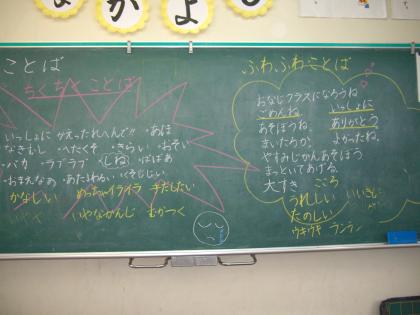 なかよし
ことば
ちくちくことば
いっしょに かえったれへんで!! ・あほ
なきむし ・へたくそ ・きらい ・おそい
・バカ ・ラブラブ ・しね ・ばばあ
・おまえなあ ・あたまわるい ・くそじじい
かなしい めっちゃイライラ 手だしたい
いやなかんじ むかつく
ふわふわことば
おなじクラスになろうね
ごめんね いっしょに
あそぼうね。 ありがとう
まいたろか。 よかったね。
やすみじかんあそぼう
まっといてあげる。
大すき こころ
うれしい
たのしい
ウキウキ ランラン